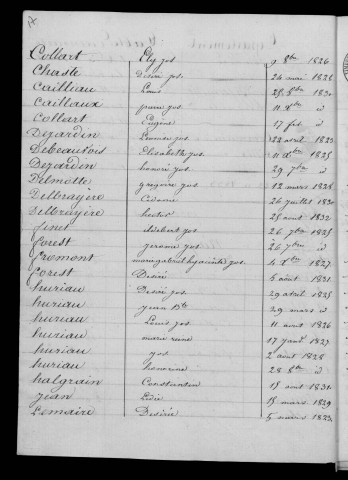 Collart Ely jos 9 8bre 1826
Chaste Désiré jos. 26 mai 1828
Cailliau Louis 28 8bre 1830
Caillaux pierre jos. 11 Xbre id
Collart Eugène 17 fév. id
Dezardin Léonier jos 22 avril 1823
Debeauvois Elisabeth jos 11 Xbre 1825
Dezardin honoré jos. 29 7bre id
Delmotte grégoire jos 12 mars 1828
Delbruyère Cédonie 26 juillet 1830
Delbruyère hector 28 aout 1832
finet adelbert jos 26 7bre 1825
forest jérome jos 26 7bre id
fromont hyacinthe jos. 4 Xbre 1827
forest Désiré 5 aout 1831
huriau Désiré jos 29 avril 1825
huriau jean Bte 29 mars id
huriau Louis jos 11 avril 1826
huriau marie reine 17 janv. 1827
huriau jos 2 aout 1828
huriau honorine 28 8bre id
halgrain Constantin 18 aout 1831
jean 18 mars 1829
Lemaire Désirée 5 mars 1823